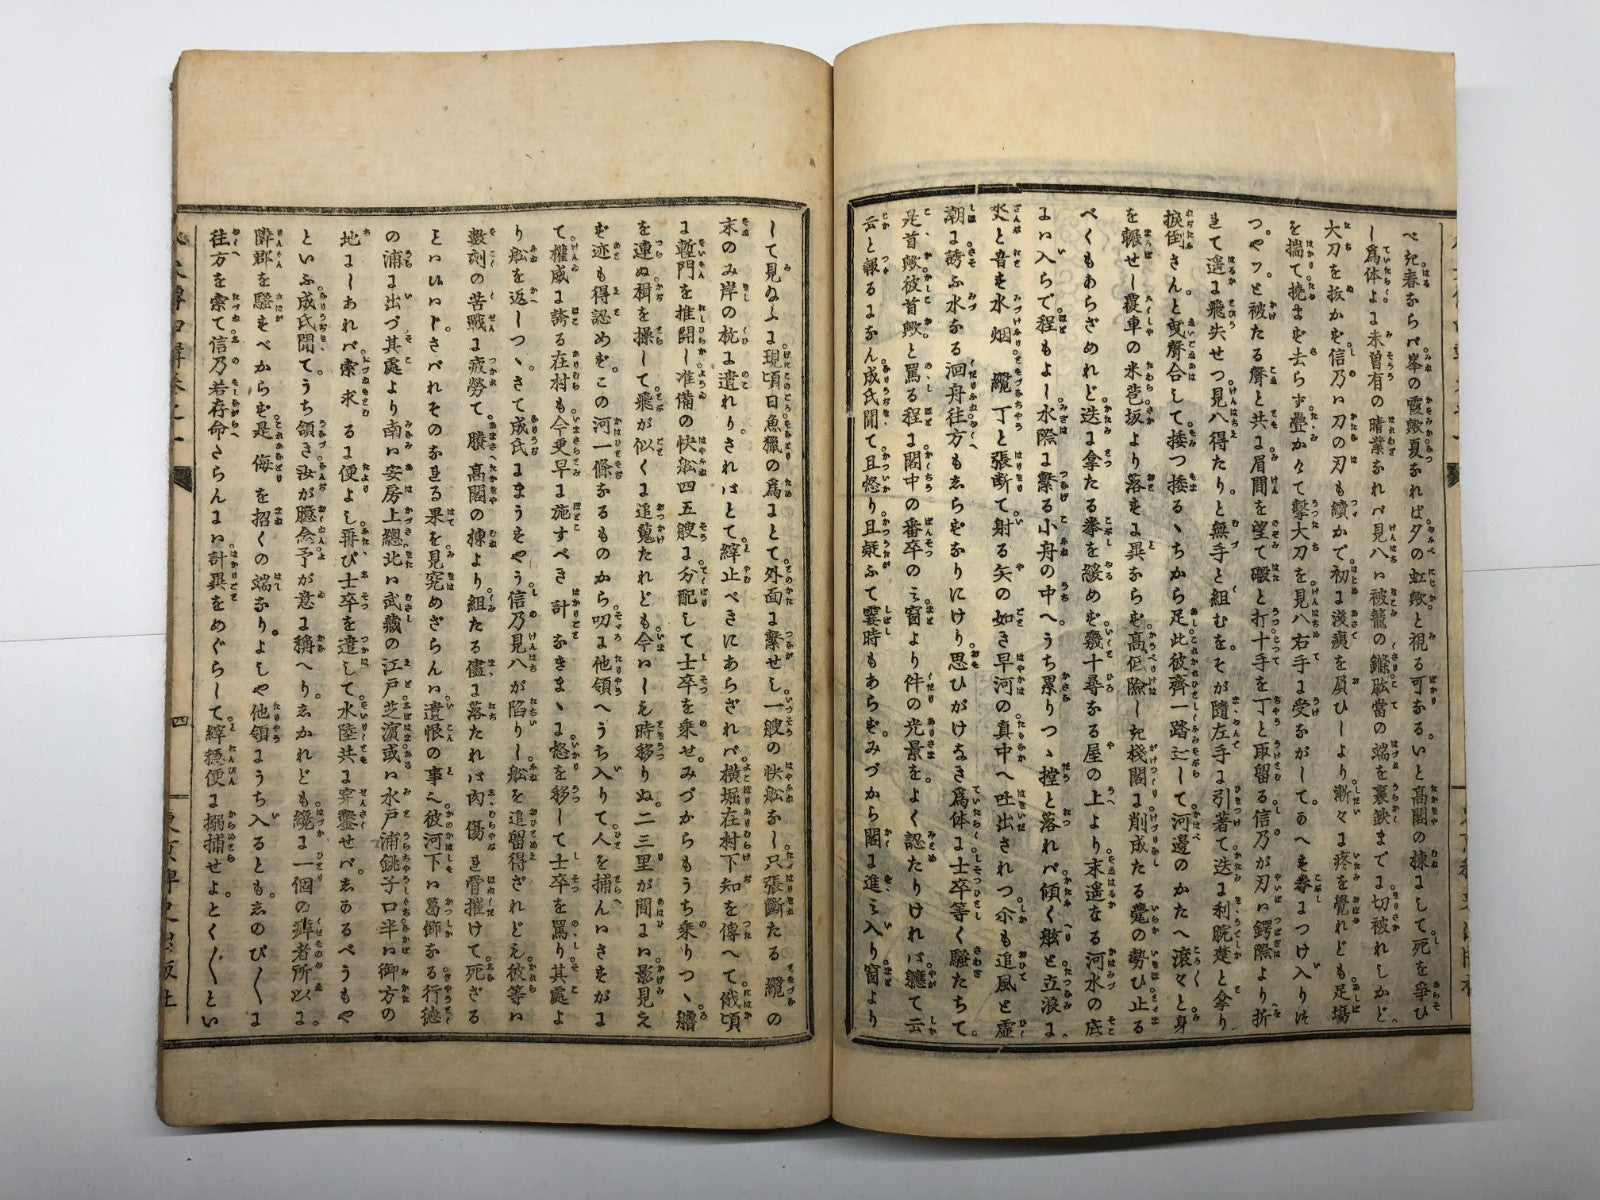 べた春ならバ峯の霞歟夏なれば夕の虹歟と視る可なるいと高閣の棟にして死を爭ひ
し為体よに未曽有の晴業なれバ見八ハ被籠の鏁肱當の端を裏欽までに切被れしかど
大刀を抜かを信乃ハ刀の刃も續かで初に淺痍を屓ひしより漸々に疼を覺れども足場
を揣て撓まを去らず疊かけて撃大刀を見八右手に受ながしてあへを拳につけ入りつ
つヤツと被たる聲と共に眉間を望て礑と打十手を丁と取留る信乃が刃ハ鍔際より折
れて遥に飛失せつ見八得たりと無手と組むをそが隨左手に引著て迭に利腕楚と拿り
捩倒さんと曳聲合して揉つ揉るゝちから足此彼齊一踏辷して河邊のかたへ滾々と身
を輾せし覆車の米苞坂より落をに異ならを高低險しき桟閣に削成たる甍の勢ひ止る
べくもあらざめれど迭に拿たる拳を緩めを幾十尋なる屋の上より末遥なる河水の底
にハ入らで程もよし水際に繋る小舟の中へうち累りつゝ撞と落れバ傾く舷と立浪に
水と音を水烟纜丁と張断て射る矢の如き早河の真中へ吐出されつ尒も追風と虚
潮に誘ふ水なる洄舟往方もゑらをなりにけり思ひがけなき為体に士卒等く騒たちて
是首歟彼首歟と罵る程に閣中の番卒のミ窗より件の光景をよく認たりけれバ軈て云
云と報るになん成氏聞て且怒り且疑ふて霎時もあらをみづから閣に進ミ入り窗より
して見るふに現頃日魚獵の爲にとて外面に繋せし一艘の快舩なし只張斷たる纜の
末のみ岸の杭に遺れりさればとて綷止べきにあらざれバ横堀在村下知を傳へて俄頃
に塹門を推開し准備の快舩四五艘に分配して士卒を乗せみづからもうち乗りつゝ艪
を連ぬ楫を操して飛が似くに追蒐たれども今ハしえ時移りぬ二三里が間にハ影見え
を迹も得認めをこの河一條なるものから叨に他領へうち入りて人を捕んハさをがに
て權威に誇る在村も今更早に施すべき計なきまゝに怒を移して士卒を罵り其處よ
り舩を返しつゝさて成氏にまうをやう信乃見八が陷りし舩を追留得ざれどえ彼等ハ
數刻の苦戰に疲勞て賸高閣の棟より組たる儘に落たれバ肉傷れ骨摧けて死ざる
といひハじさバれそのなれる果を見究めざらんハ遺恨の事え彼河下ハ葛餝なる行德
の浦に出づ其處より南ハ安房上總北ハ武藏の江戸芝濱或ハ水戸浦銚子口半ハ御方の
地にしあれバ索求るに便よし再び士卒を遣して水陸共に穿鑿せバゑるべうもや
といふ成氏聞てうち領き汝が臆念予が意に稱へりゑかれども纔に一個の癖者所以に
隣郷を騒をべからを是侮を招くの端なりよしや他領にうち入るともゑのび〳〵に
往方を索て信乃若存命さらんにハ計畧をめぐらして綷穏便に搦捕せよとく〳〵とい
四